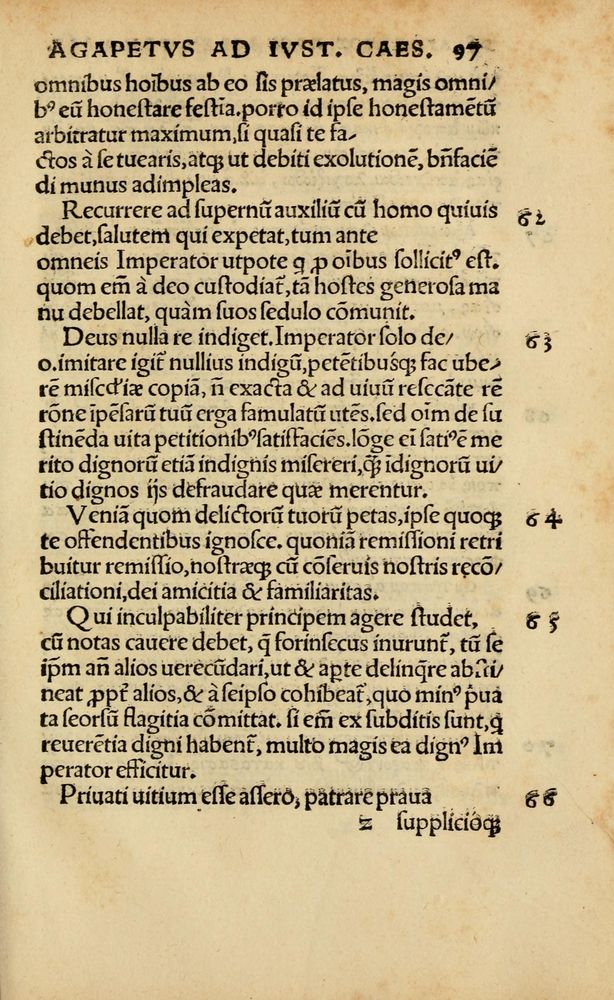 AGAPETVS AD IVST. CAES. 97
omnibus hoībus ab eo sis prælatus, magis omni/
bꝰ eū honestare festīa. porro id ipse honestamētū
arbitratur maximum, si quasi te fa/
ctos à se tuearis, atqꝫ ut debiti exolutionē, bn̄faciē
di munus adimpleas.
Recurrere ad supernū auxiliū cū homo quiuis 62
debet, salutem qui expetat, tum ante
omneis Imperator utpote q ꝓ oībus sollicitꝰ est.
quom em̄ à deo custodiat᷑, tā hostes generosa ma
nu debellat, quàm suos sedulo cōmunit.
Deus nulla re indiget. Imperator solo de/ 63
o. imitare igit᷑ nullius indigū, petētibusqꝫ fac ube/
rē misc̄diæ copiā, n̄ exacta & ad uiuū resecāte rē
rōne īpēsarū tuū erga famulatū utēs. sed oīm de su
stinēda uita petitionibꝰ satisfaciēs. lōge ei᷑ satiꝰ ē me
rito dignorū etiā indignis misereri, qꝫ̄ īdignorū ui/
tio dignos ijs defraudare quæ merentur.
Veniā quom delictorū tuorū petas, ipse quoqꝫ 64
te offendentibus ignosce. quoniā remissioni retri
buitur remissio, nostræqꝫ cū cōseruis nostris recō/
ciliationi, dei amicitia & familiaritas.
Qui inculpabiliter principem agere studet, 65
cū notas cauere debet, q̄ forinsecus inurunt᷑, tū se
ip̄m an̄ alios uerecūdari, ut & apte delinq̄re absti/
neat ꝓpt᷑ alios, & à seipso cohibeat᷑, quo minꝰ p̄ua
ta seorsū flagitia cōmittat. si em̄ ex subditis sunt, q
reuerētia digni habent᷑, multo magis ea dignꝰ Im
perator efficitur.
Priuati uitium esse assero, patrare praua 66
z supplicioqꝫ